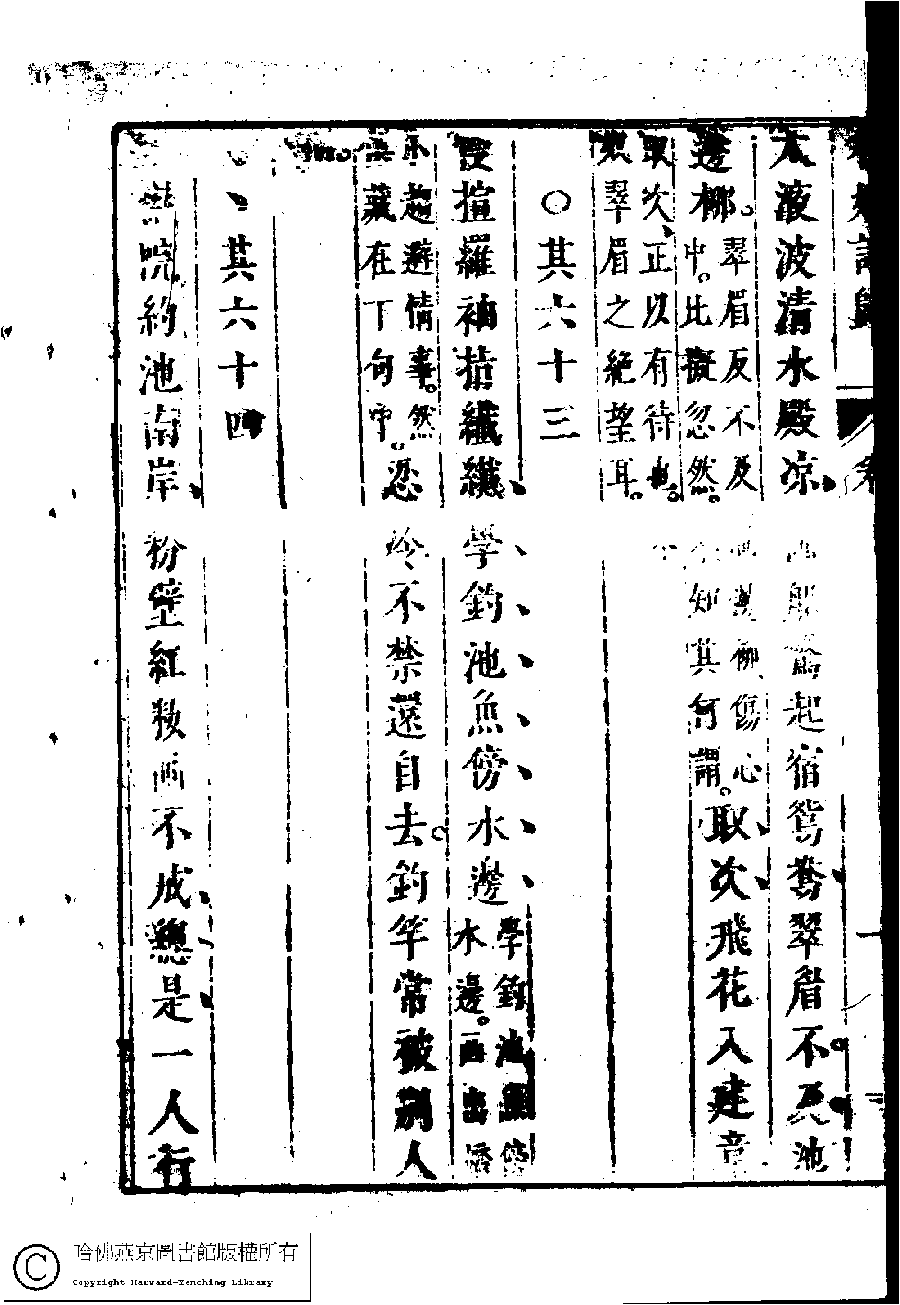 太液波清水殿凉、画船驚起宿鴛鴦翠眉不及池
邊柳。取次飛花入建章
翠眉反不及柳傷心
中。比擬忽然。知其何謂。
取次、正以有待也。
翠眉之絶望耳。
○其六十三
揎羅袖指纖纖、學釣池魚傍水邊
學釣池魚傍
水邊。画出嬌
小趨避情事。然
藏在丁句中。
忍冷不禁還自去。釣竿常被別人
其六十四
院約池南岸、粉壁紅妝画不成總是一人行
哈佛燕京圖書館版權所有
Copyright Harvard-Yenching Library